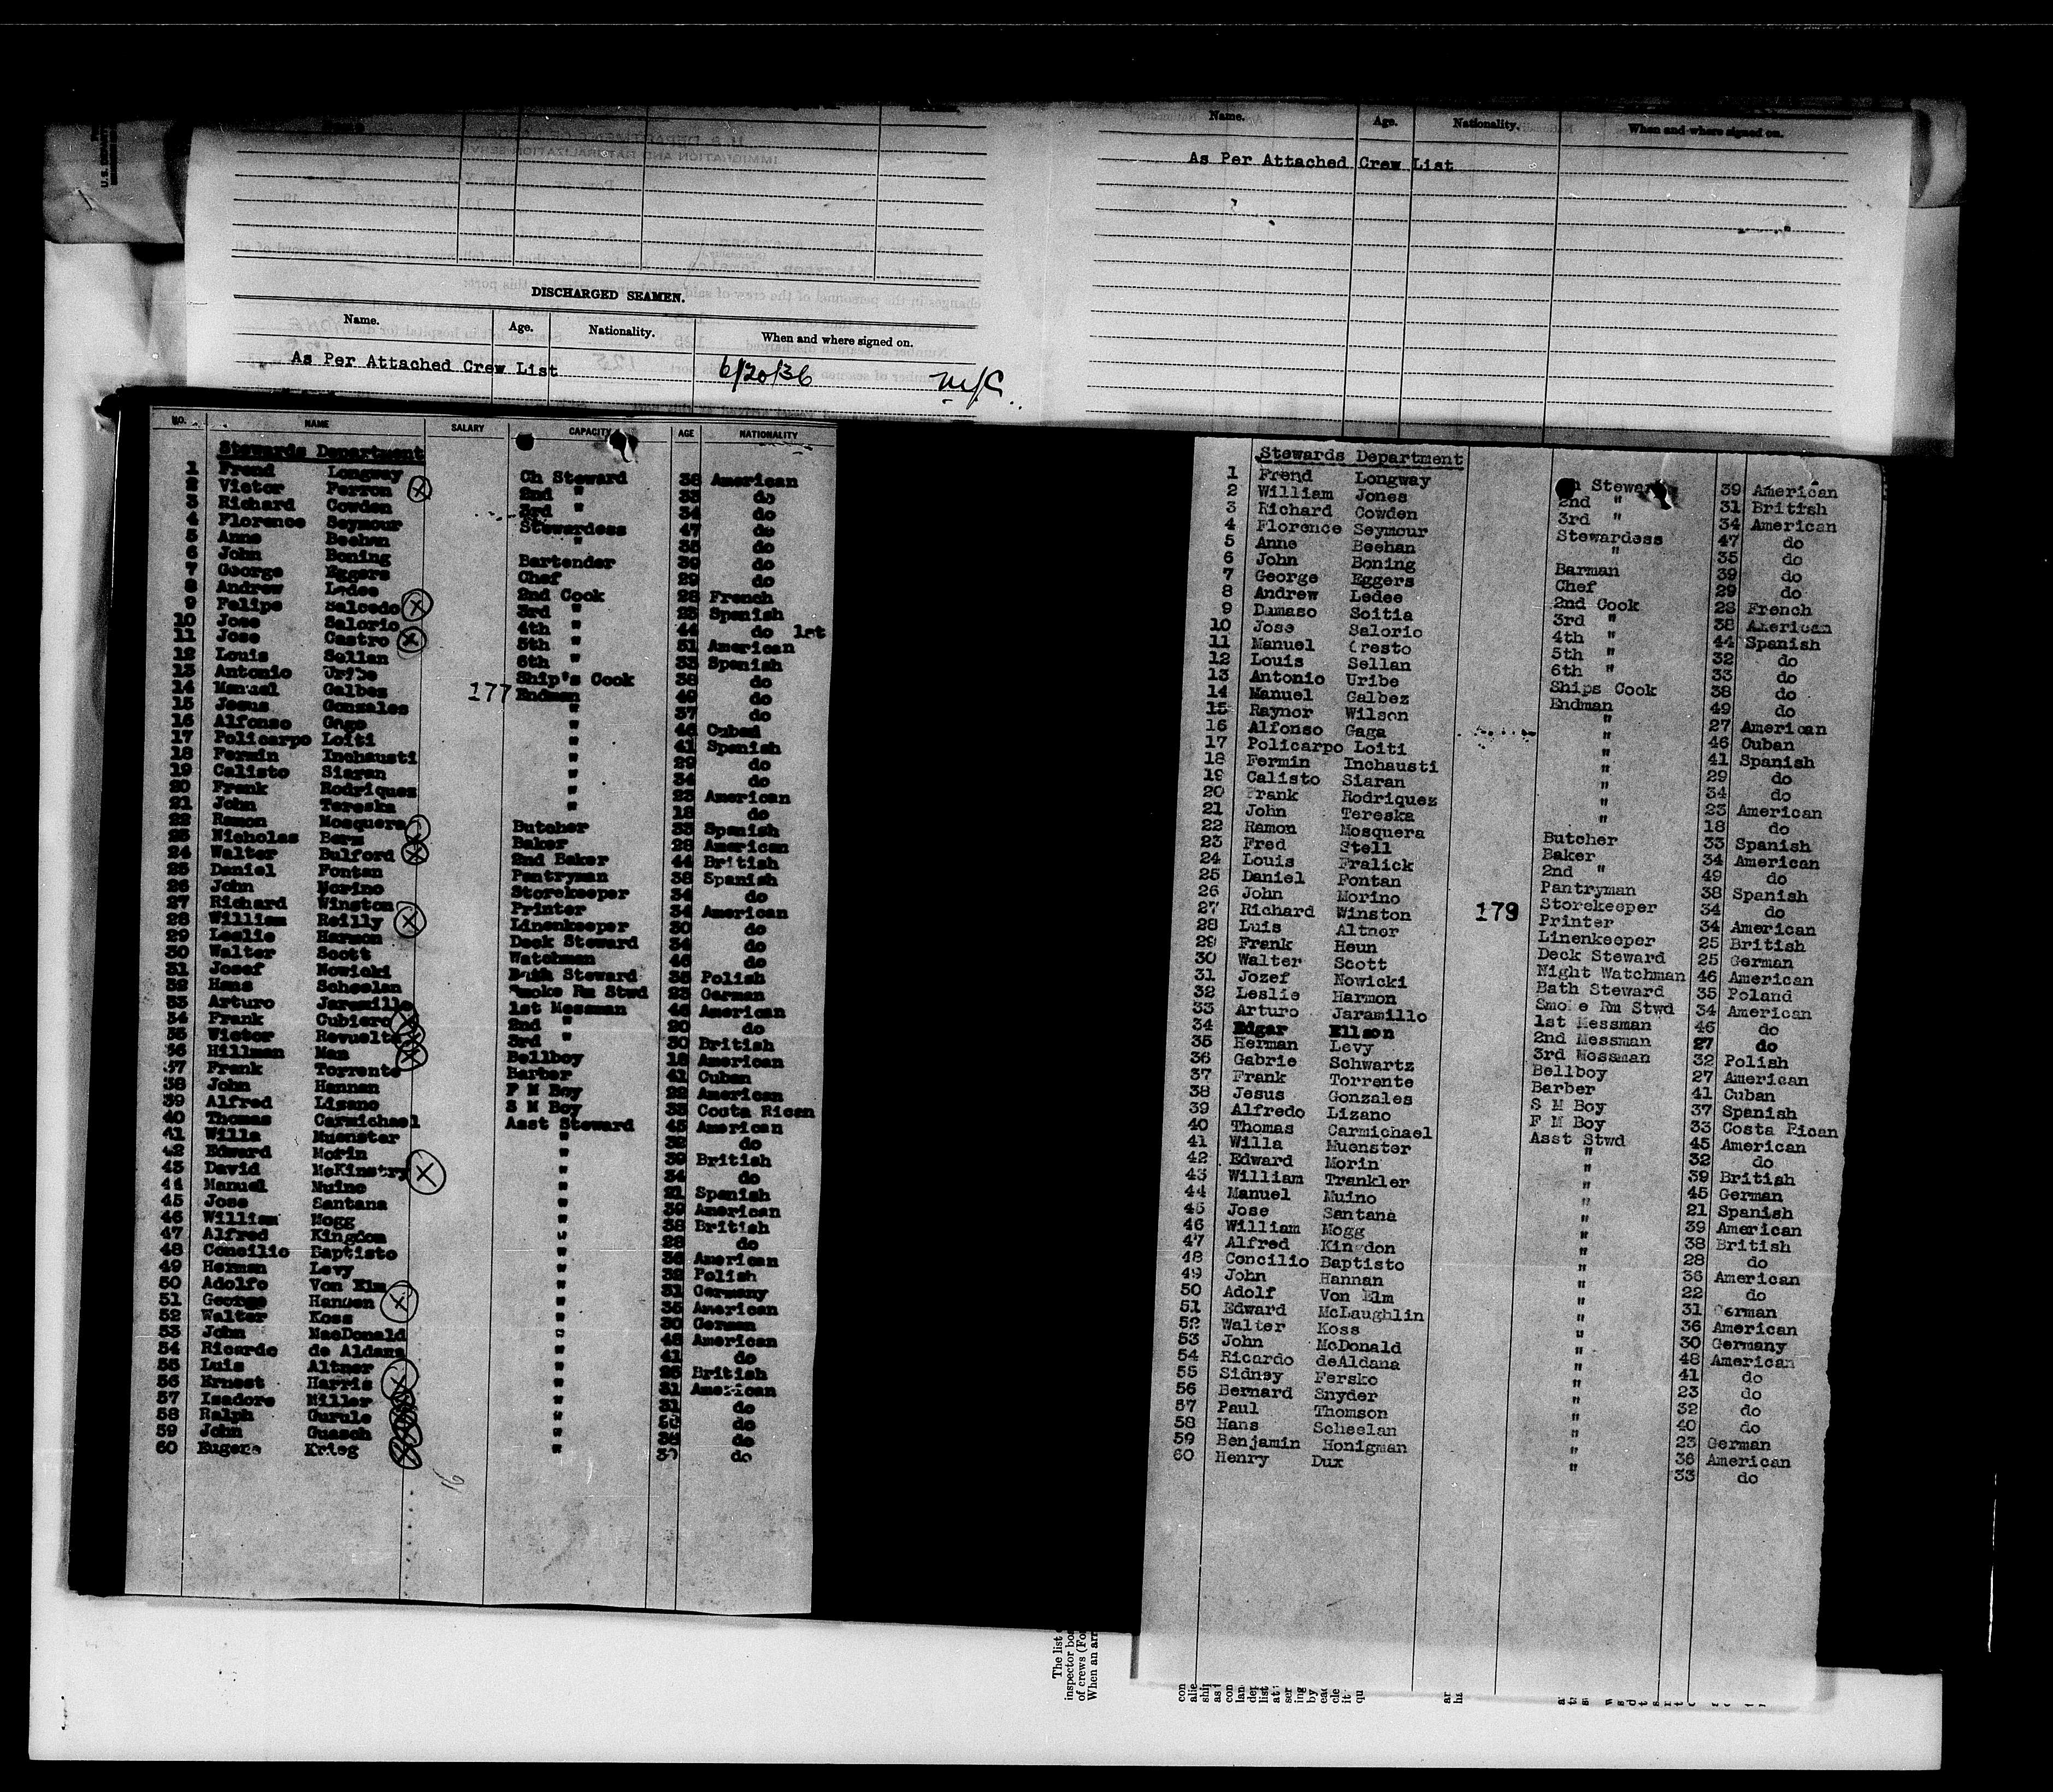 DISCHARGED SEAMEN.
Name. Age. Nationality. When and where signed on.
As Per Attached Crew List 6/20/36
NO. NAME SALARY CAPACITY AGE NATIONALITY
Stewards Department
1 Frend Longway Ch Steward 38 American
2 Victor Perron 2nd " 33 do
3 Richard Cowden 3rd " 34 do
4 Florence Seymour Stewardess 47 do
5 Anne Beehan " 35 do
6 John Boning Bartender 39 do
7 George Eggers Chef 29 do
8 Andrew Ledee 2nd Cook 28 French
9 Felipe Salcedo 3rd " 25 Spanish
10 Jose Salorio 4th " 44 do 1st
11 Jose Castro 5th " 31 American
12 Louis Sellan 6th " 33 Spanish
13 Antonio Uribe Ship's Cook 38 do
14 Manuel Galbez 177 Endman 49 do
15 Jesus Gonzales " 37 do
16 Alfonso Gaga " 46 Cuban
17 Policarpo Loiti " 41 Spanish
18 Fermin Inchausti " 29 do
19 Calisto Siaran " 34 do
20 Frank Rodriquez " 23 American
21 John Tereska " 18 do
22 Ramon Mosquera Butcher 33 Spanish
23 Nicholas Berm Baker 28 American
24 Walter Bulford 2nd Baker 44 British
25 Daniel Fontan Pantryman 38 Spanish
26 John Morino Storekeeper 34 do
27 Richard Winston Printer 34 American
28 William Reilly Linenkeeper 30 do
29 Leslie Harmon Deck Steward 34 do
30 Walter Scott Watchman 46 do
31 Josef Nowicki Bath Steward 35 Polish
32 Hans Scheelan Smoke Rm Stwd 23 German
33 Arturo Jaramillo 1st Messman 46 American
34 Frank Cubiero 2nd " 20 do
35 Victor Revuelta 3rd " 30 British
36 Hillman Man Bellboy 18 American
37 Frank Torrente Barber 41 Cuban
38 John Hannan F M Boy 22 American
39 Alfred Lizano S M Boy 33 Costa Rican
40 Thomas Carmichael Asst Steward 45 American
41 Willa Muenster " 32 do
42 Edward Morin " 39 British
43 David McKinstry " 34 do
44 Manuel Muino " 21 Spanish
45 Jose Santana " 39 American
46 William Mogg " 38 British
47 Alfred Kingdon " 28 do
48 Concilio Baptisto " 36 American
49 Herman Levy " 32 Polish
50 Adolfo Von Elm " 31 Germany
51 George Hansen " 35 American
52 Walter Koss " 30 German
53 John MacDonald " 48 American
54 Ricardo de Aldana " 41 do
55 Luis Altner " 25 British
56 Ernest Harris " 31 American
57 Isadore Miller " 31 do
58 Ralph Gurule " do
59 John Guasch " do
60 Eugene Krieg " do
Name. Age. Nationality. When and where signed on.
As Per Attached Crew List
Stewards Department
1 Frend Longway Ch Steward 39 American
2 William Jones 2nd " 31 British
3 Richard Cowden 3rd " 34 American
4 Florence Seymour Stewardess 47 do
5 Anne Beehan " 35 do
6 John Boning Barman 39 do
7 George Eggers Chef 29 do
8 Andrew Ledee 2nd Cook 28 French
9 Damaso Soitia 3rd " 38 American
10 Jose Salorio 4th " 44 Spanish
11 Manuel Cresto 5th " 32 do
12 Louis Sellan 6th " 33 do
13 Antonio Uribe Ships Cook 38 do
14 Manuel Galbez Endman 49 do
15 Raynor Wilson " 27 American
16 Alfonso Gaga " 46 Cuban
17 Policarpo Loiti " 41 Spanish
18 Fermin Inchausti " 29 do
19 Calisto Siaran " 34 do
20 Frank Rodriquez " 23 American
21 John Tereska " 18 do
22 Ramon Mosquera Butcher 33 Spanish
23 Fred Stell Baker 34 American
24 Louis Fralick 2nd " 49 do
25 Daniel Fontan Pantryman 38 Spanish
26 John Morino Storekeeper 34 do
27 Richard Winston 179 Printer 34 American
28 Luis Altner Linenkeeper 25 British
29 Frank Heun Deck Steward 25 German
30 Walter Scott Night Watchman 46 American
31 Jozef Nowicki Bath Steward 35 Poland
32 Leslie Harmon Smoke Rm Stwd 34 American
33 Arturo Jaramillo 1st Messman 46 do
34 Edgar Ellson 2nd Messman 27 do
35 Herman Levy 3rd Messman 32 Polish
36 Gabrie Schwartz Bellboy 27 American
37 Frank Torrente Barber 41 Cuban
38 Jesus Gonzales S M Boy 37 Spanish
39 Alfredo Lizano F M Boy 33 Costa Rican
40 Thomas Carmichael Asst Stwd 45 American
41 Willa Muenster " 32 do
42 Edward Morin " 39 British
43 William Trankler " 45 German
44 Manuel Muino " 21 Spanish
45 Jose Santana " 39 American
46 William Mogg " 38 British
47 Alfred Kingdon " 28 do
48 Concilio Baptisto " 36 American
49 John Hannan " 22 do
50 Adolf Von Elm " 31 German
51 Edward McLaughlin " 36 American
52 Walter Koss " 30 Germany
53 John McDonald " 48 American
54 Ricardo deAldana " 41 do
55 Sidney Fersko " 23 do
56 Bernard Snyder " 32 do
57 Paul Thomson " 40 do
58 Hans Scheelan " 23 German
59 Benjamin Honigman " 36 American
60 Henry Dux " 33 do
The list
inspector
of crews
When an